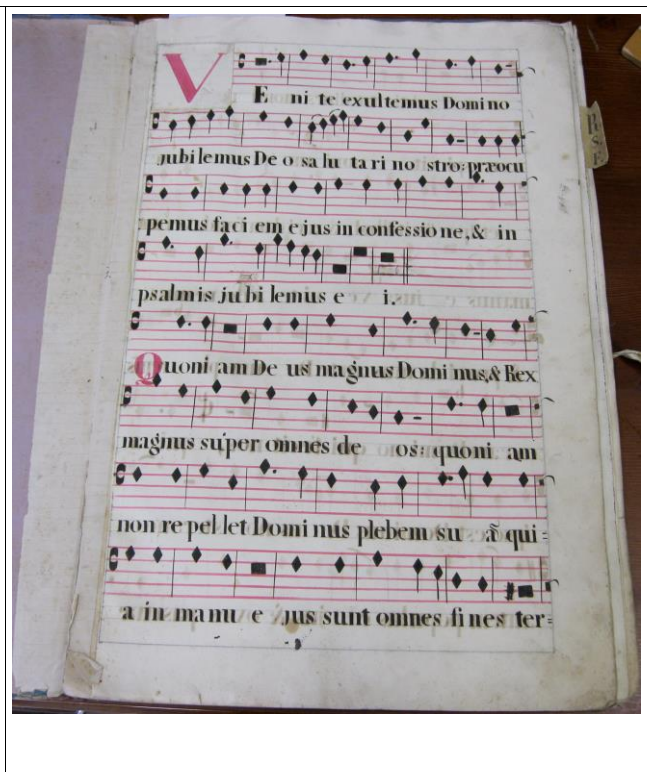 VEni te exultemus Domino
jubilemus De o sa lu ta ri no stro: præocu
pemus faci em ejus in confessio ne, & in
psalmis ju bi lemus e i.
Quoni am De us magnus Domi nus, & Rex
magnus super omnes de os: quoni am
non re pel let Domi nus plebem su ã qui=
a in ma nu e jus sunt omnes fi nes ter=